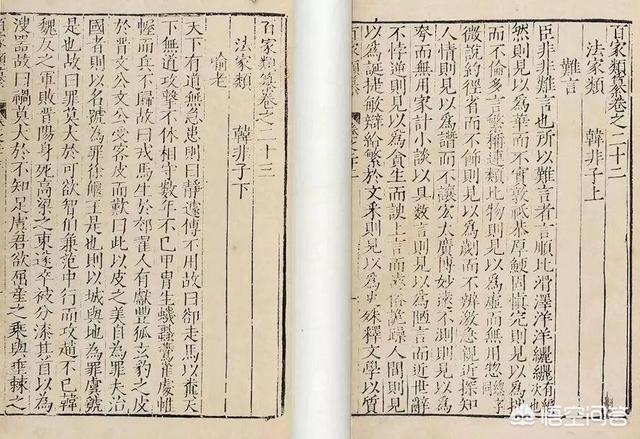 百家類纂卷之二十二
法家類 韓非子上
難言
臣非非難言也所以難言者言順比滑澤洋洋纚纚
然則見以爲華而不實敦祗恭厚鯁固慎完則見以爲
而不倫多言繁稱連類比物則見以爲虛而無用惣總字
微說約徑省而不飾則見以爲劌而不辯激急親近探知
人情則見以爲譖而不讓宏大廣博妙遠不測則見以爲
夸而無用家計小談以具數言則見以爲陋言而近世辭
不悖逆則見以爲貪生而諛上言而遠俗詭躁人間則見
以爲誕捷敏辯給繁於文采則見以爲史殊釋文學以質
百家類纂卷之二十三
法家類 韓非子下
喻老
天下有道無急患則曰靜遽傳不用故曰卻走馬以糞天
下無道攻擊不休相守數年不已甲冑生蟣蝨鷰雀處帷
幄而兵不歸故曰戎馬生於郊翟人有獻豐狐玄豹之皮
於晉文公文公受客皮而歎曰此以皮之美自爲罪夫治
國者則以名號爲罪徐偃王是也則以城與地爲罪虞虢
是也故曰罪莫大於可欲智伯兼范中行而攻趙不已韓
魏反之軍敗晉陽身死高梁之東遂卒被分漆其首以爲
溲器故曰禍莫大於不知足虞君欲屈產之乘與垂棘之
悟空问答